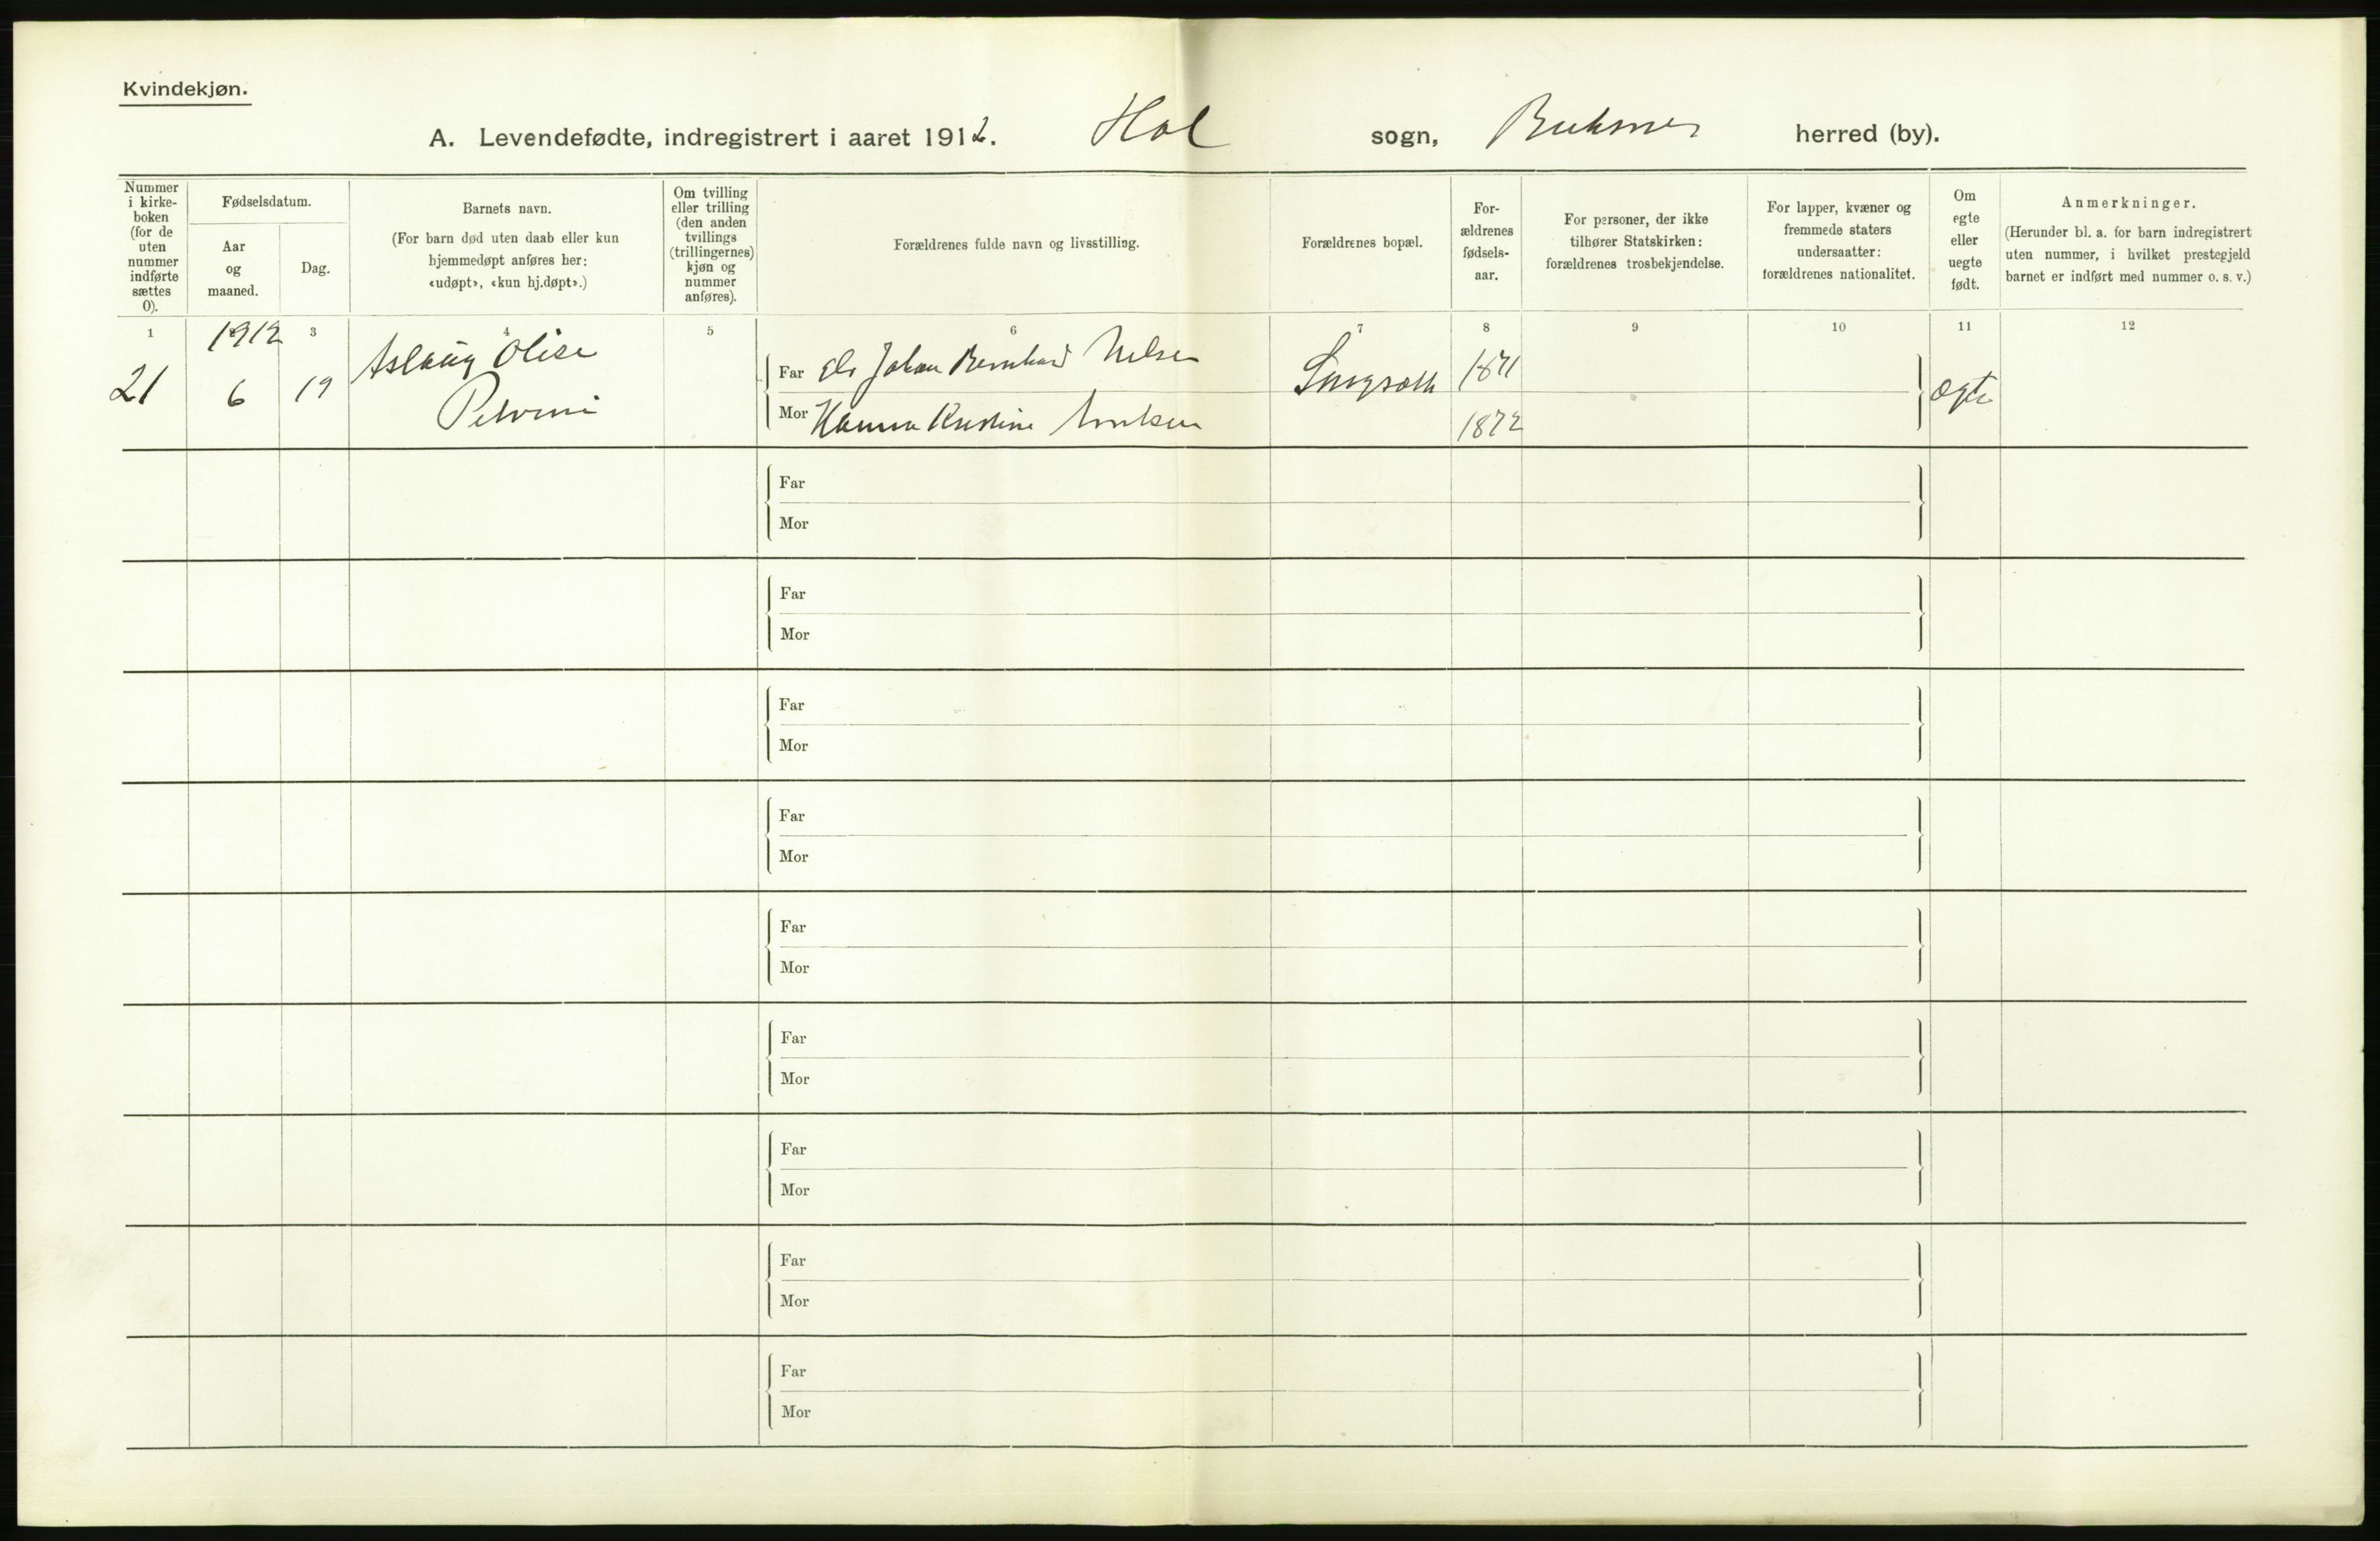 Kvindekjøn.
A. Levendefødte, indregistrert i aaret 1912. Hol sogn, Buksnes herred (by).
Nummer
i kirke-
boken
(for de
uten
nummer
indførte
sættes
0).
Fødselsdatum.
Aar
og
maaned.
Dag.
Barnets navn.
(For barn død uten daab eller kun
hjemmedøpt anføres her:
«udøpt», «kun hj.døpt».)
Om tvilling
eller trilling
(den anden
tvillings
(trillingernes)
kjøn og
nummer
anføres).
Forældrenes fulde navn og livsstilling.
Forældrenes bopæl.
For-
ældrenes
fødsels-
aar.
For personer, der ikke
tilhører Statskirken:
forældrenes trosbekjendelse.
For lapper, kvæner og
fremmede staters
undersaatter:
forældrenes nationalitet.
Om
egte
eller
uegte
født.
Anmerkninger.
(Herunder bl. a. for barn indregistrert
uten nummer, i hvilket prestegjeld
barnet er indført med nummer o. s. v.)
1 1912 3 4 5 6 7 8 9 10 11 12
21 6 19
Aslaug Olise
Petrine
Far Johan Bernhard Nilsen 1871
Mor Hanna Kristine 1872
ægte
Far
Mor
Far
Mor
Far
Mor
Far
Mor
Far
Mor
Far
Mor
Far
Mor
Far
Mor
Far
Mor